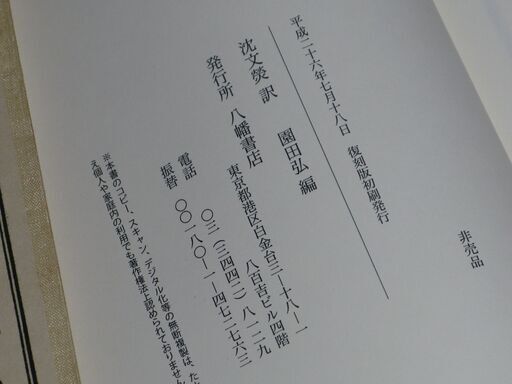 非売品
平成二十六年七月十八日 復刻版初刷発行
沈文熒 訳 園田弘 編
発行所 八幡書店
東京都港区白金台三―十八―一
八百吉ビル四階
電話 〇三(三四四二)八一二九
振替 〇〇一八〇―一―四七二七六三
※本書のコピー、スキャン、デジタル化等の無断複製は、た
え個人や家庭内の利用でも著作権法上認められておりません